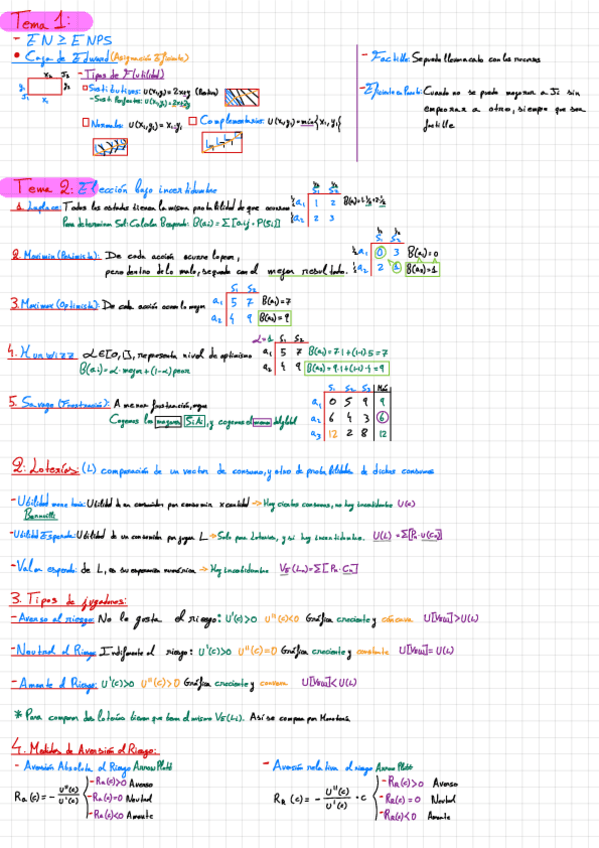 Tema 1:
- EN ≥ ENPS
• Caja de Edward (Asignación Eficiente)
- Tipos de F(utilidad)
□ Sustitutivos: U(x,y)=2x+y (Rectas)
- Sust. Perfectos: U(x,y)=2x+2y
□ Normales: U(x,y)=x·y
□ Complementarios: U(x,y)=min{x,y}
- Factible: Se puede llevar a cabo con los recursos
- Eficiente en Pareto: Cuando no se puede mejorar a J1 sin
empeorar a otro, siempre que sea
factible
Tema 2: Elección bajo incertidumbre
1. Laplace: Todos los estados tienen la misma probabilidad de que ocurran
Para determinar Sol: Calcular B esperado: B(ai) = Σ[aij · P(Si)]
S1 S2
a1 1 2
a2 2 3
2. Maximin (Pesimista): De cada acción ocurre lo peor,
pero dentro de lo malo, se queda con el mejor resultado.
S1 S2
a1 0 3 B(a1)=0
a2 2 1 B(a2)=1
3. Maximax (Optimista): De cada acción ocurre lo mejor
S1 S2
a1 5 7 B(a1)=7
a2 4 9 B(a2)=9
4. Hurwizz α∈[0,1], representa nivel de optimismo
B(ai)= α·mejor+(1-α)peor
α=1 S1 S2
a1 5 7 B(a1)=7·1+(1-1)·5=7
a2 4 9 B(a2)=9·1+(1-1)·4=9
5. Savage (Frustración): A menor frustración, mejor
Cogemos los mayores Si, y cogemos el menor del global
S1 S2 S3 Máx
a1 0 5 9 9
a2 6 4 3 6
a3 12 2 8 12
2. Loterías: (L) comparación de un vector de consumo, y otro de probabilidades de dichos consumos
- Utilidad monetaria: Utilidad de un consumidor por consumir x cantidad → Hay ciertos consumos, no hay incertidumbre U(c)
Bernoulli
- Utilidad Esperada: Utilidad de un consumidor por jugar L → Solo para Loterías, y si hay incertidumbre. U(L) = Σ[Pn·U(Cn)]
- Valor esperado: de L, es su esperanza numérica → Hay incertidumbre VE(Ln)=Σ[Pn·Cn]
3. Tipos de jugadores:
- Averso al riesgo: No le gusta el riesgo: U'(c)>0 U''(c)<0 Gráfica creciente y cóncava U[VE(L)]>U(L)
- Neutral al Riesgo: Indiferente al riesgo: U'(c)>0 U''(c)=0 Gráfica creciente y constante U[VE(L)]=U(L)
- Amante al Riesgo: U'(c)>0 U''(c)>0 Gráfica creciente y convexa U[VE(L)]<U(L)
* Para comparar dos loterías tienen que tener el mismo VE(Li). Así se compara por Monotonía.
4. Medidas de Aversión al Riesgo:
- Aversión Absoluta al Riesgo Arrow Pratt
RA(c) = - U''(c) / U'(c)
- RA(c)>0 Averso
- RA(c)=0 Neutral
- RA(c)<0 Amante
- Aversión relativa al riesgo Arrow Pratt
RR(c) = - U''(c) / U'(c) · c
- RR(c)>0 Averso
- RR(c)=0 Neutral
- RR(c)<0 Amante